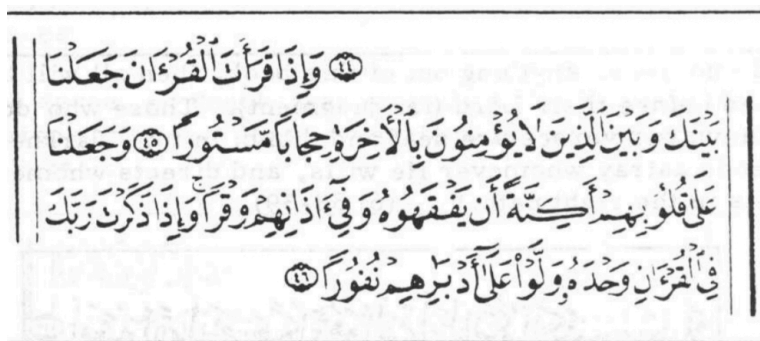 ٤٤ وَإِذَا قَرَأْتَ ٱلْقُرْءَانَ جَعَلْنَا
بَيْنَكَ وَبَيْنَ ٱلَّذِينَ لَا يُؤْمِنُونَ بِٱلْأَخِرَةِ حِجَابًا مَّسْتُورًا ٤٥ وَجَعَلْنَا
عَلَىٰ قُلُوبِهِمْ أَكِنَّةً أَن يَفْقَهُوهُ وَفِىٓ ءَاذَانِهِمْ وَقْرًا وَإِذَا ذَكَرْتَ رَبَّكَ
فِى ٱلْقُرْءَانِ وَحْدَهُۥ وَلَّوْا۟ عَلَىٰٓ أَدْبَٰرِهِمْ نُفُورًا ٤٦